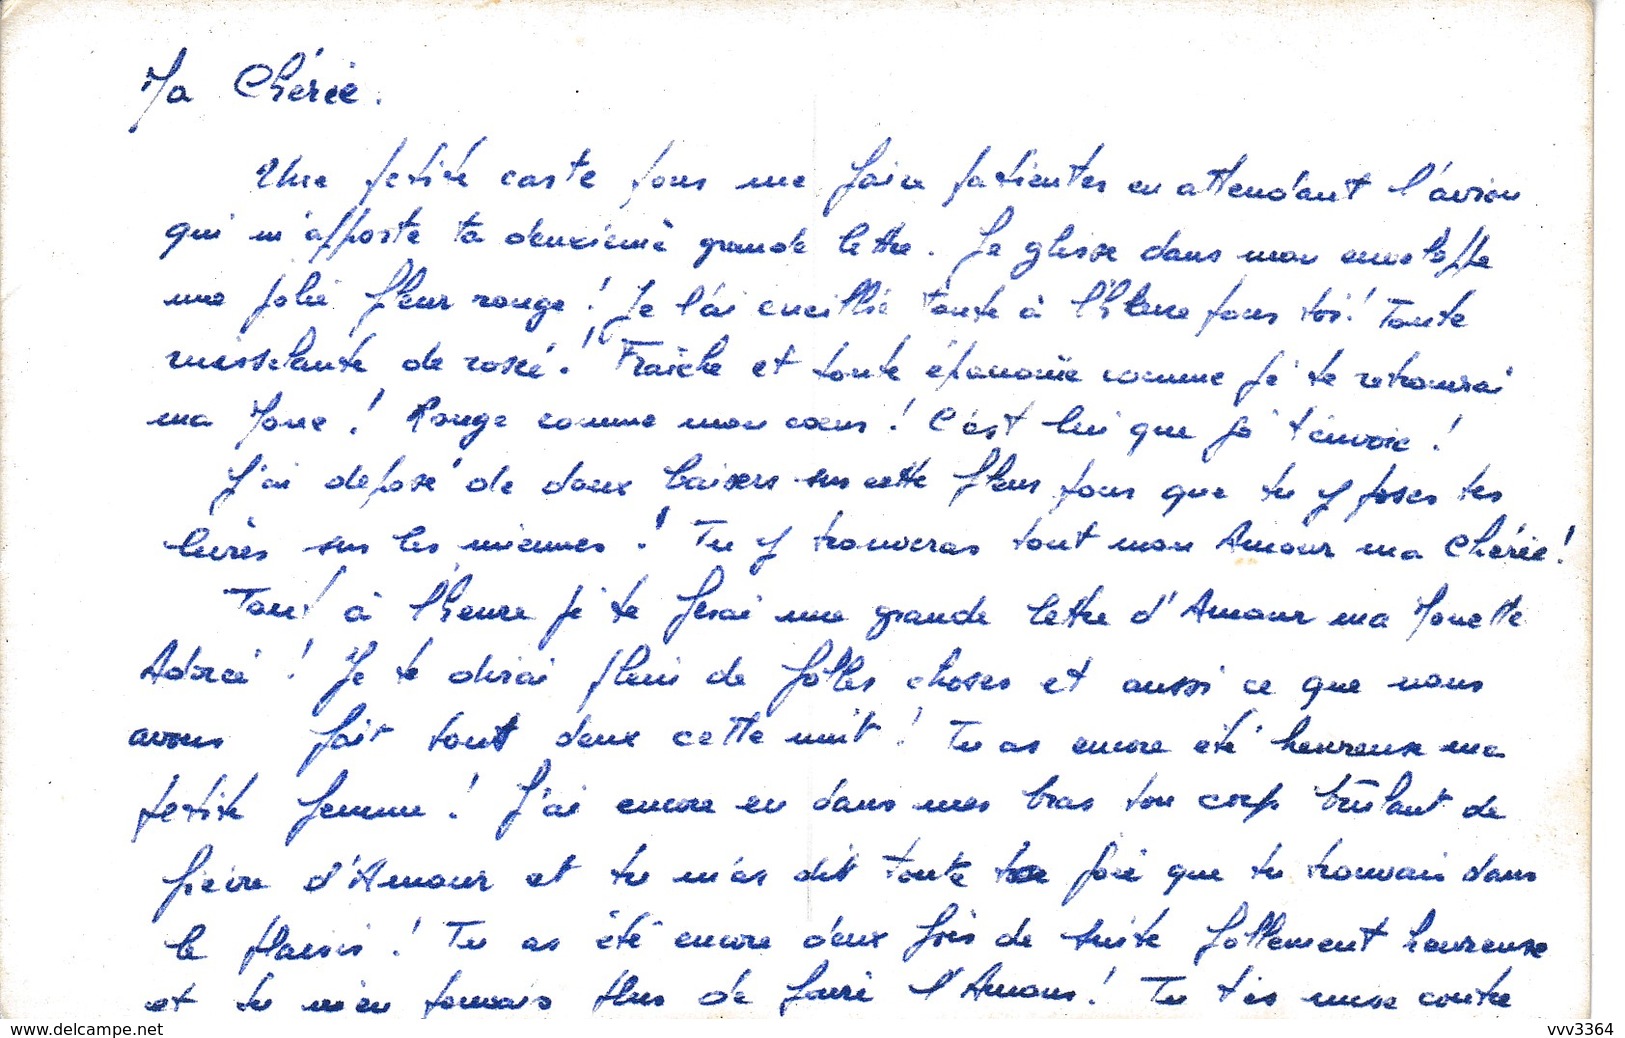 Ma Chérie.
Une petite carte pour me faire patienter en attendant l'avion
qui m'apporte ta deuxième grande lettre. Je glisse dans mon enveloppe
une jolie fleur rouge ! Je l'ai cueillie toute à l'heure pour toi ! Toute
ruisselante de rosée ! Fraîche et toute épanouie comme je te retrouvrai
ma ! Rouge comme mon coeur ! C'est lui que je t'envoie !
J'ai déposé de doux baisers sur cette fleur pour que tu y poses tes
lèvres sur les miennes ! Tu y trouveras tout mon Amour ma Chérie !
Tout à l'heure je te ferai une grande lettre d'Amour ma
Adorée ! Je te dirai plein de folles choses et aussi ce que nous
avons fait tout deux cette nuit ! Tu as encore été heureuse ma
petite femme ! J'ai encore eu dans mes bras ton corps brûlant de
fièvre d'Amour et tu m'as dit toute ta joie que tu trouvais dans
le plaisir ! Tu as été encore deux fois de suite follement heureuse
et tu n'en pouvais plus de faire l'Amour ! Tu t'es mise contre
www.delcampe.net
vvv3364